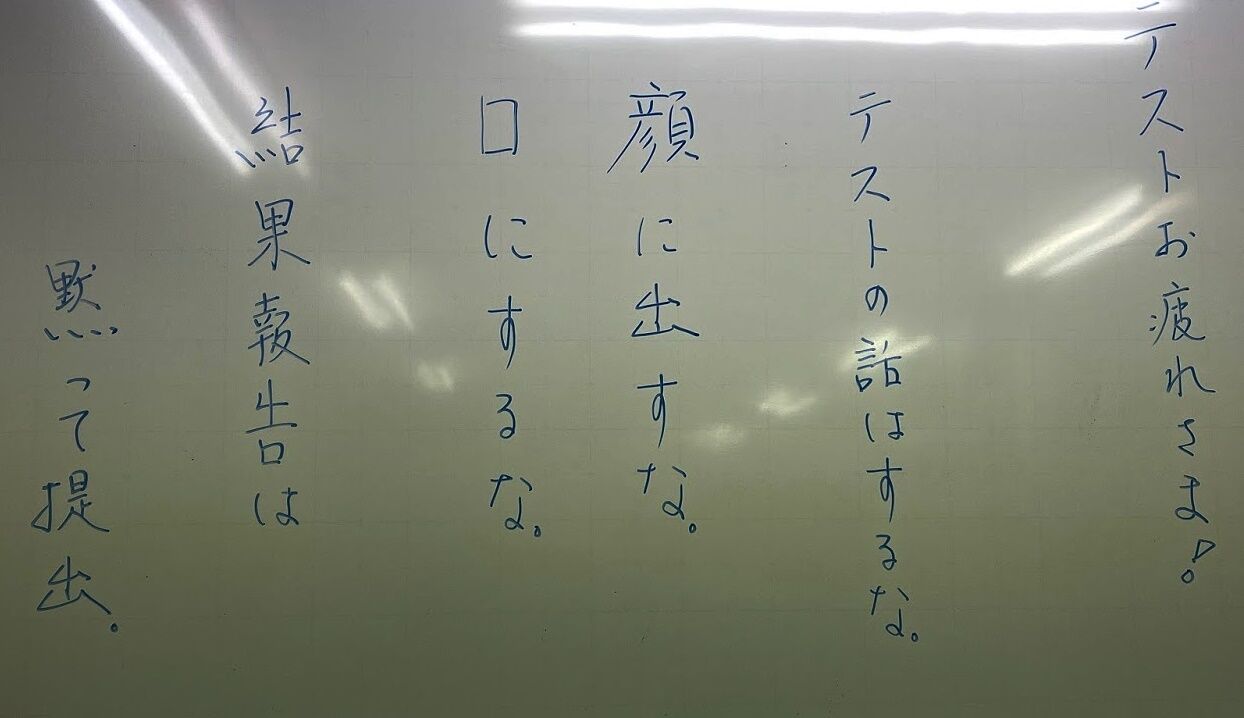 テストお疲れさま!
テストの話はするな。
顔に出すな。
口にするな。
結果報告は
黙って提出。